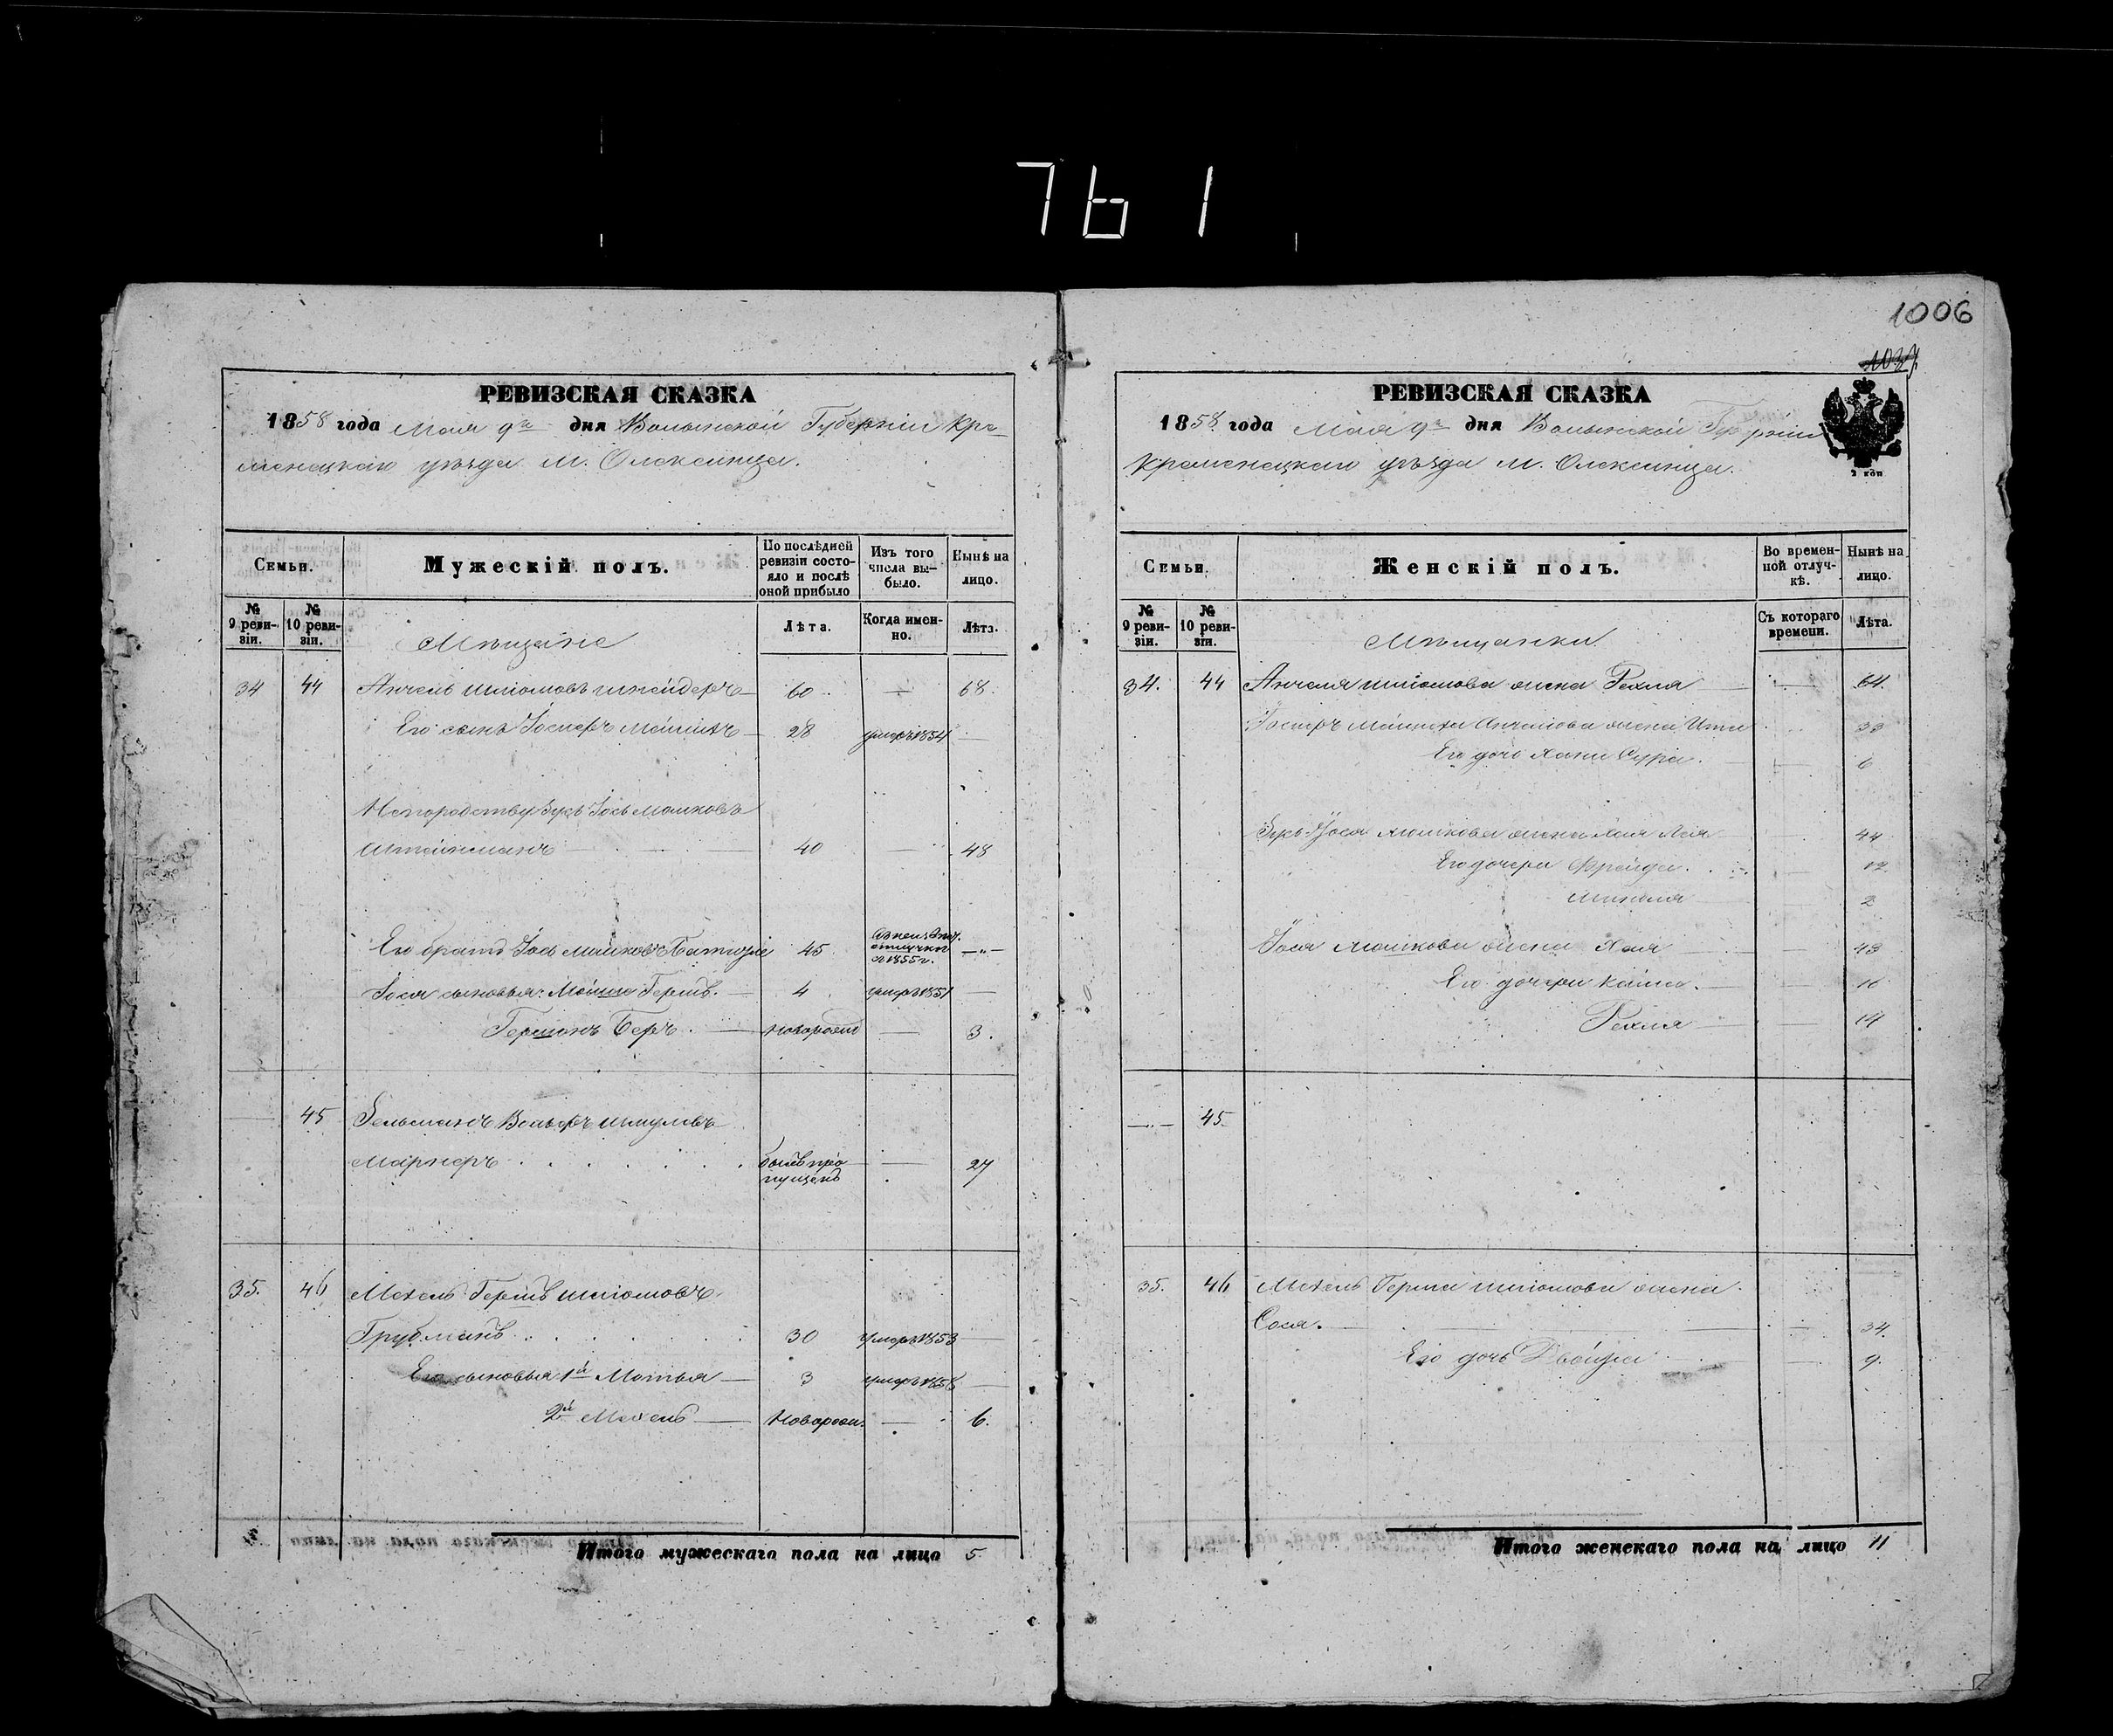 761
1006
РЕВИЗСКАЯ СКАЗКА
1858 года Мая 9го дня Волынской Губерніи Кре-
менецкаго уѣзда м. Олексинца.
Семьи.
Мужескій полъ.
По послѣдней ревизіи состо-яло и послѣ оной прибыло
Изъ того числа вы-было.
Нынѣ на лицо.
№ 9 реви-зіи.
№ 10 реви-зіи.
Лѣта.
Когда имен-но.
Лѣта.
Мѣщане
34 44 Анчель Шліомовъ Шнейдеръ 60 — 68.
Его сынъ Іосиеръ 28 умеръ 1854 —
Зусь Іось Мошковъ
Штейнманъ 40 — 48
Его братъ Іось Мошковъ 45 отлучки 1855 г. —
Іося сыновья: Мошко Гершъ. 4 умеръ 1851 —
Гершонъ Беръ. новорож — 3.
— 45 Гельманъ Вольфъ Шмулевъ
Марнеръ былъ про пущенъ — 27
35. 46 Мехель Гершъ Шліомовъ
Грубманъ 30 умеръ 1853 —
Его сыновья 1й Мотья 3 умеръ 1858 —
2й Мехель Новорож. — 6.
Итого мужескаго пола на лицо 5.
РЕВИЗСКАЯ СКАЗКА
1858 года Мая 9го дня Волынской Губерніи
Кременецкаго уѣзда м. Олексинца.
2 коп
Семьи.
Женскій полъ.
Во времен-ной отлуч-кѣ.
Нынѣ на лицо.
№ 9 реви-зіи.
№ 10 реви-зіи.
Съ котораго времени.
Лѣта.
Мѣщанки
34. 44 Анчеля Шліомова жена Рехля — 64.
Анчелова жена Ита 33
Его дочь Хана Сура. — 6
Зусь Іося Мошкова жена Лея 44
Его дочери Фрейда. 12
2
Іося Мошкова жена Хая — 43
Его дочери — 16
Рехля — 14
— 45.
35. 46 Мехель Герша Шліомова жена
Сося. — 34.
Его дочь Двойра — 9.
Итого женскаго пола на лицо 11